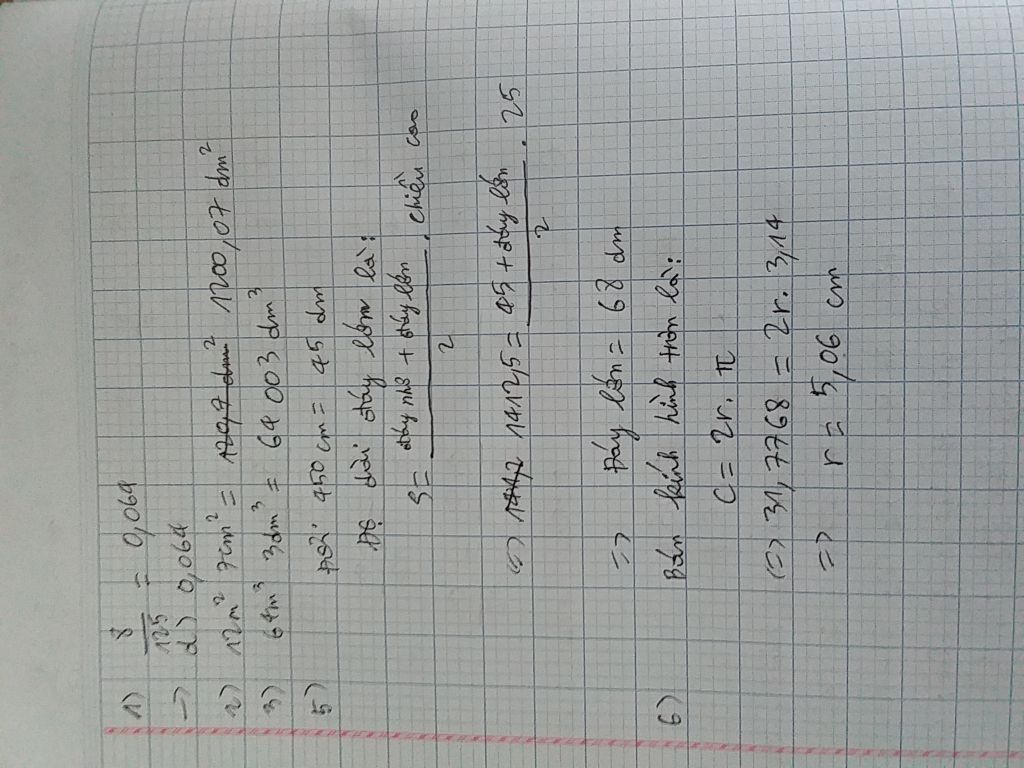 1) 8/125 = 0,064
-> d) 0,064
2) 12m² 7cm² = 120,7 dm² 1200,07 dm²
3) 64m³ 3dm³ = 64 003 dm³
5) Đổi 450 cm = 45 dm
Độ dài đáy lớn là:
S = (đáy nhỏ + đáy lớn)/2 . chiều cao
<=> 1412,5 = (45 + đáy lớn)/2 . 25
=> Đáy lớn = 68 dm
6) Bán kính hình tròn là:
C = 2r. π
<=> 31,7768 = 2r. 3,14
=> r = 5,06 cm